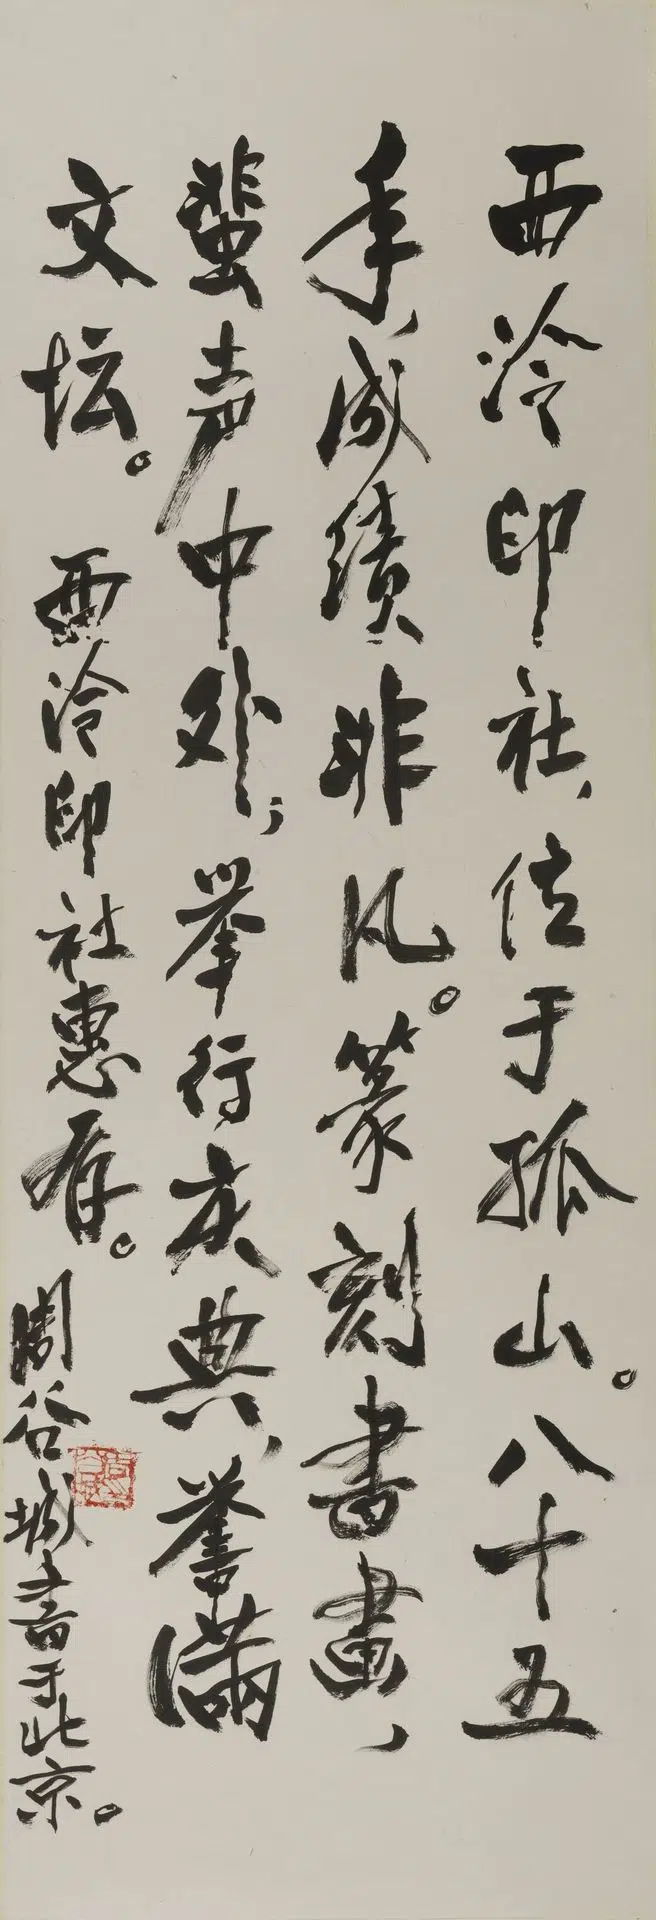 西泠印社,位于孤山。八十五
年,成绩非凡。篆刻書畫,
蜚声中外,举行庆典,誉满
文坛。 西泠印社惠存。
周谷城書于北京。